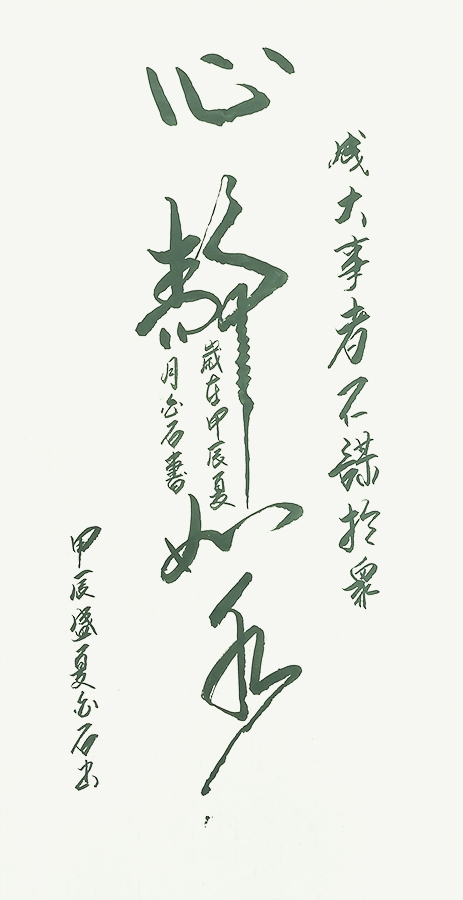 成大事者不謀於眾
心靜如水
歲在甲辰夏
月金石書
甲辰盛夏金石書